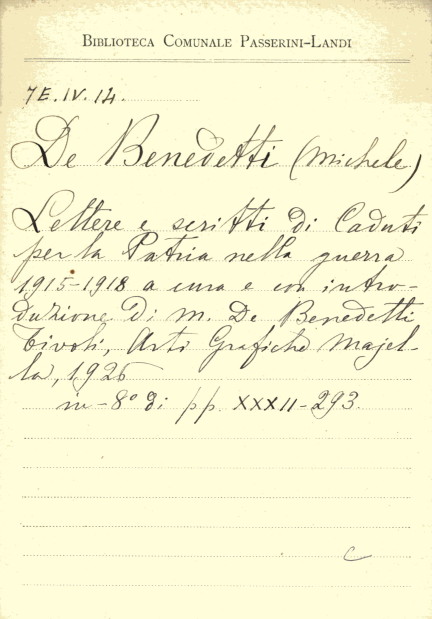 BIBLIOTECA COMUNALE PASSERINI-LANDI
7E.IV.14.
De Benedetti (Michele)
Lettere e scritti di Caduti
per la Patria nella guerra
1915-1918 a cura e con intro-
duzione di M. De Benedetti
Tivoli, Arti Grafiche Majel-
la, 1926
in-8° di pp. XXXII-293.
C